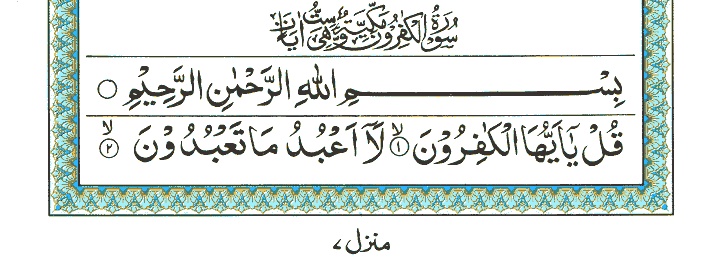 سُوْرَةُ الْكٰفِرُوْنَ مَكِّيَّةٌ وَّهِیَ سِتُّ اٰیَاتٍ
بِسْمِ اللّٰهِ الرَّحْمٰنِ الرَّحِیْمِ ○
قُلْ یٰۤاَیُّهَا الْكٰفِرُوْنَ ۙ﴿۱﴾ لَاۤ اَعْبُدُ مَا تَعْبُدُوْنَ ۙ﴿۲﴾
منزل ۷